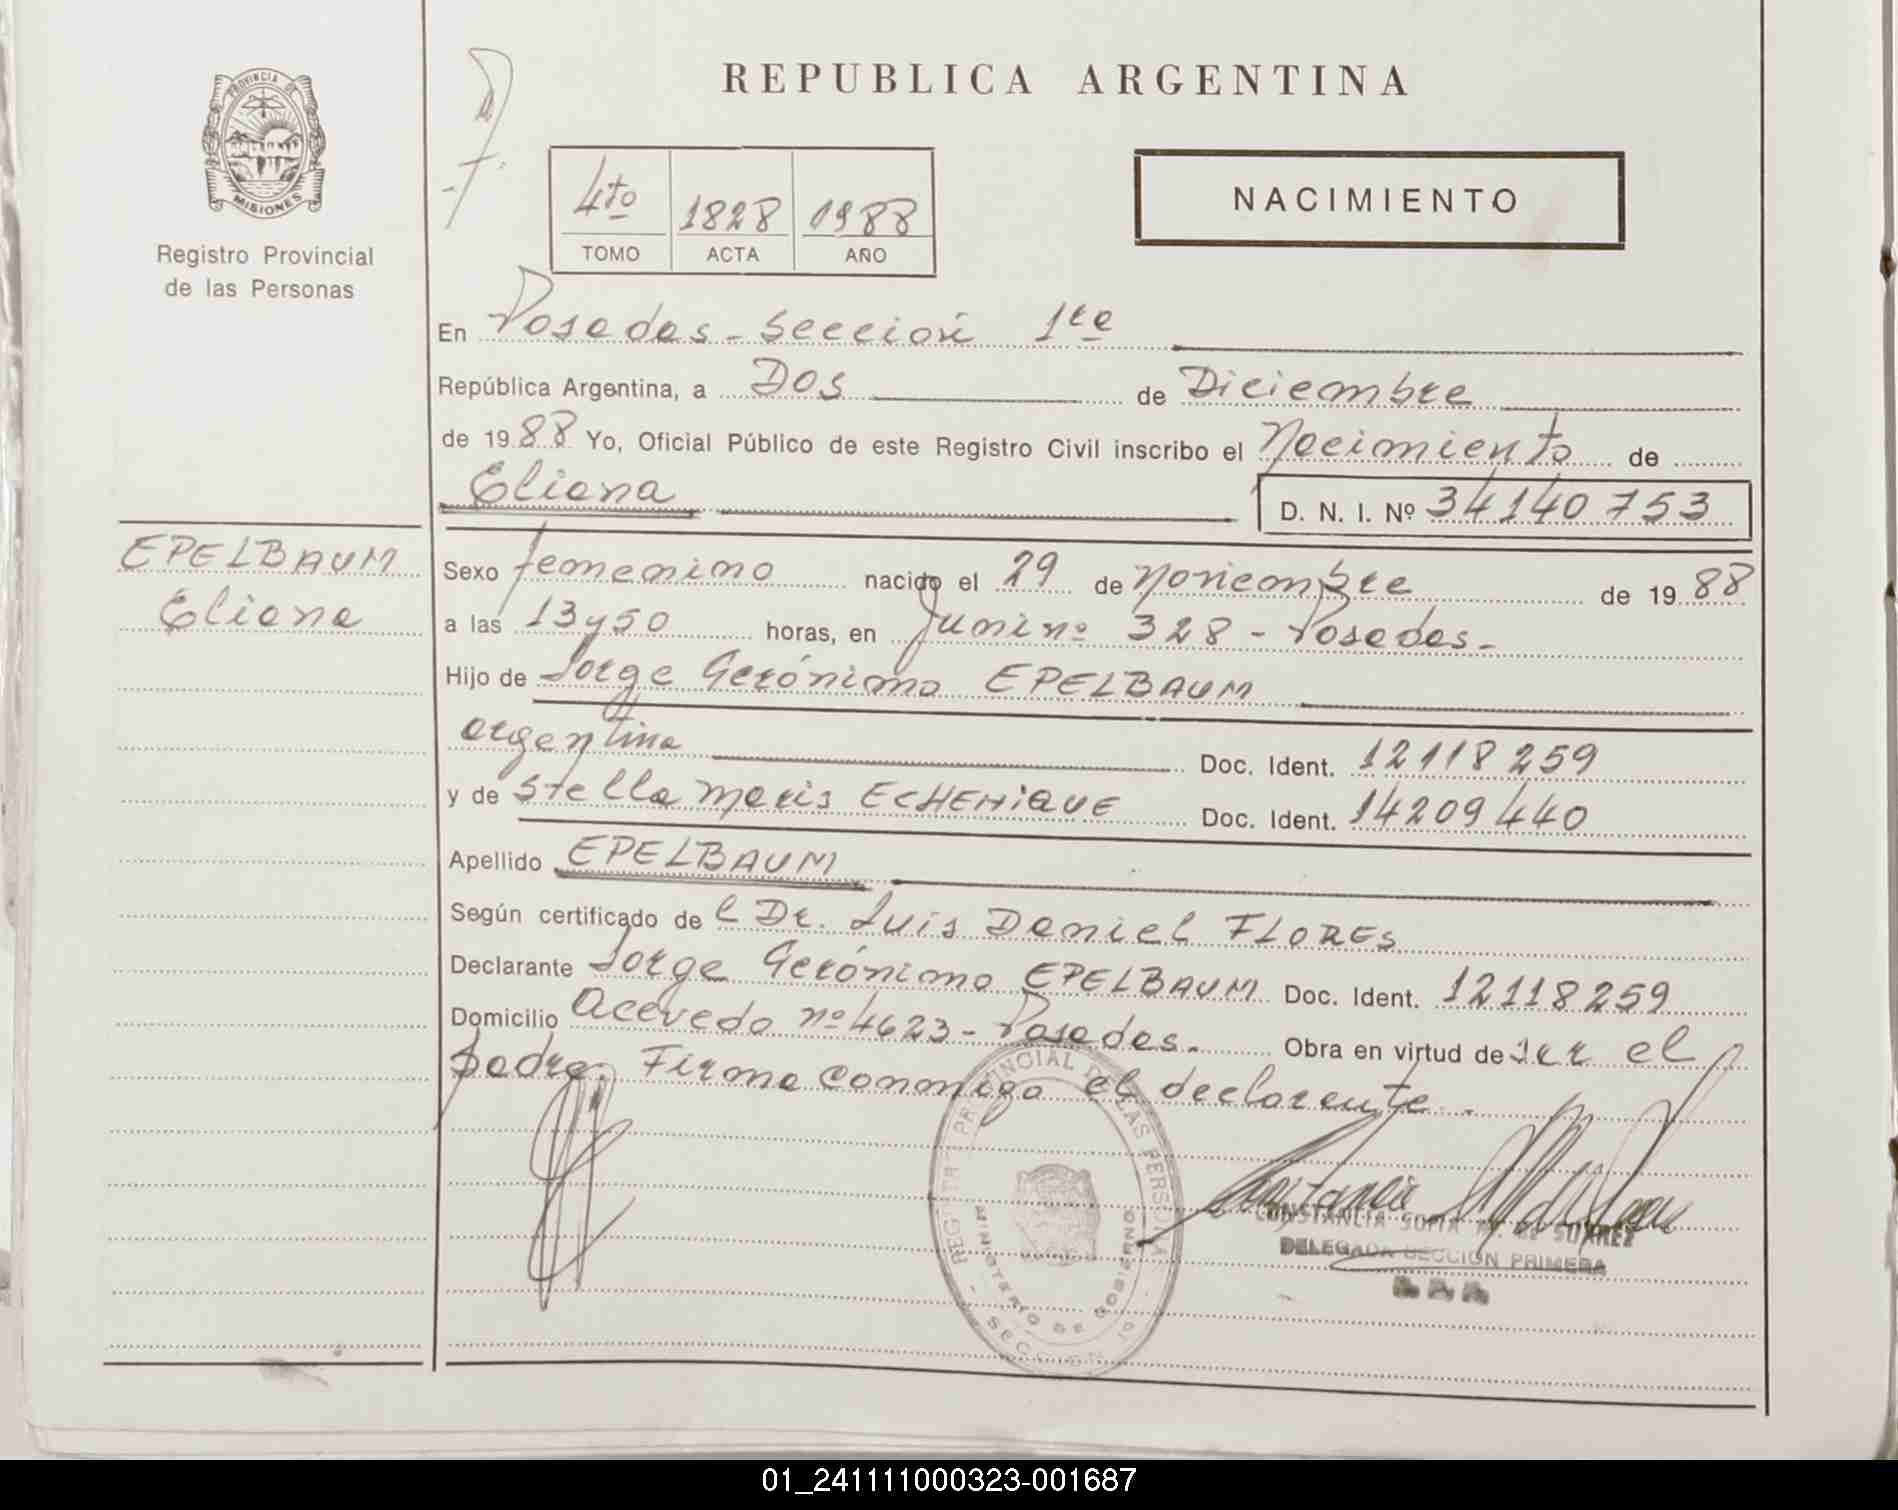 REPUBLICA ARGENTINA
PROVINCIA DE
MISIONES
Registro Provincial
de las Personas
4to 1828 1988
TOMO ACTA AÑO
NACIMIENTO
En Posadas - Sección 1ra
República Argentina, a Dos de Diciembre
de 1988 Yo, Oficial Público de este Registro Civil inscribo el Nacimiento de
Eliana
D. N. I. Nº 34140753
EPELBAUM
Eliana
Sexo femenino nacido el 29 de Noviembre de 1988
a las 13y50 horas, en Junín nº 328 - Posadas.-
Hijo de Jorge Gerónimo EPELBAUM
argentina Doc. Ident. 12118259
y de Stella Maris ECHENIQUE Doc. Ident. 14209440
Apellido EPELBAUM
Según certificado de l Dr. Luis Daniel FLORES
Declarante Jorge Gerónimo EPELBAUM Doc. Ident. 12118259
Domicilio Acevedo nº 4623 - Posadas.- Obra en virtud de ser el
padre. Firma conmigo el declarante.
MINISTERIO DE GOBIERNO
CONSTANCIA SOFIA M. DE SUAREZ
DELEGADA SECCION PRIMERA
01_241111000323-001687